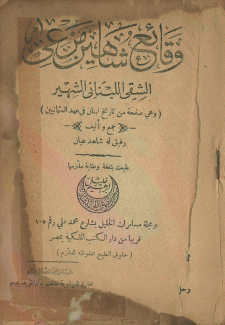 وقائع شاهين مرعي
الشقي اللبناني الشهير
(وهي صفحة من تاريخ لبنان في عهد العثمانيين)
جمع وتأليف
رفيق له شاهد عيان
طبعت بنفقة وعناية ملتزمها
ومجلة مسامرات الخليل بشارع محمد علي رقم
قريبا من دار الكتب الملكية بمصر
(حقوق الطبع محفوظة للملتزم)